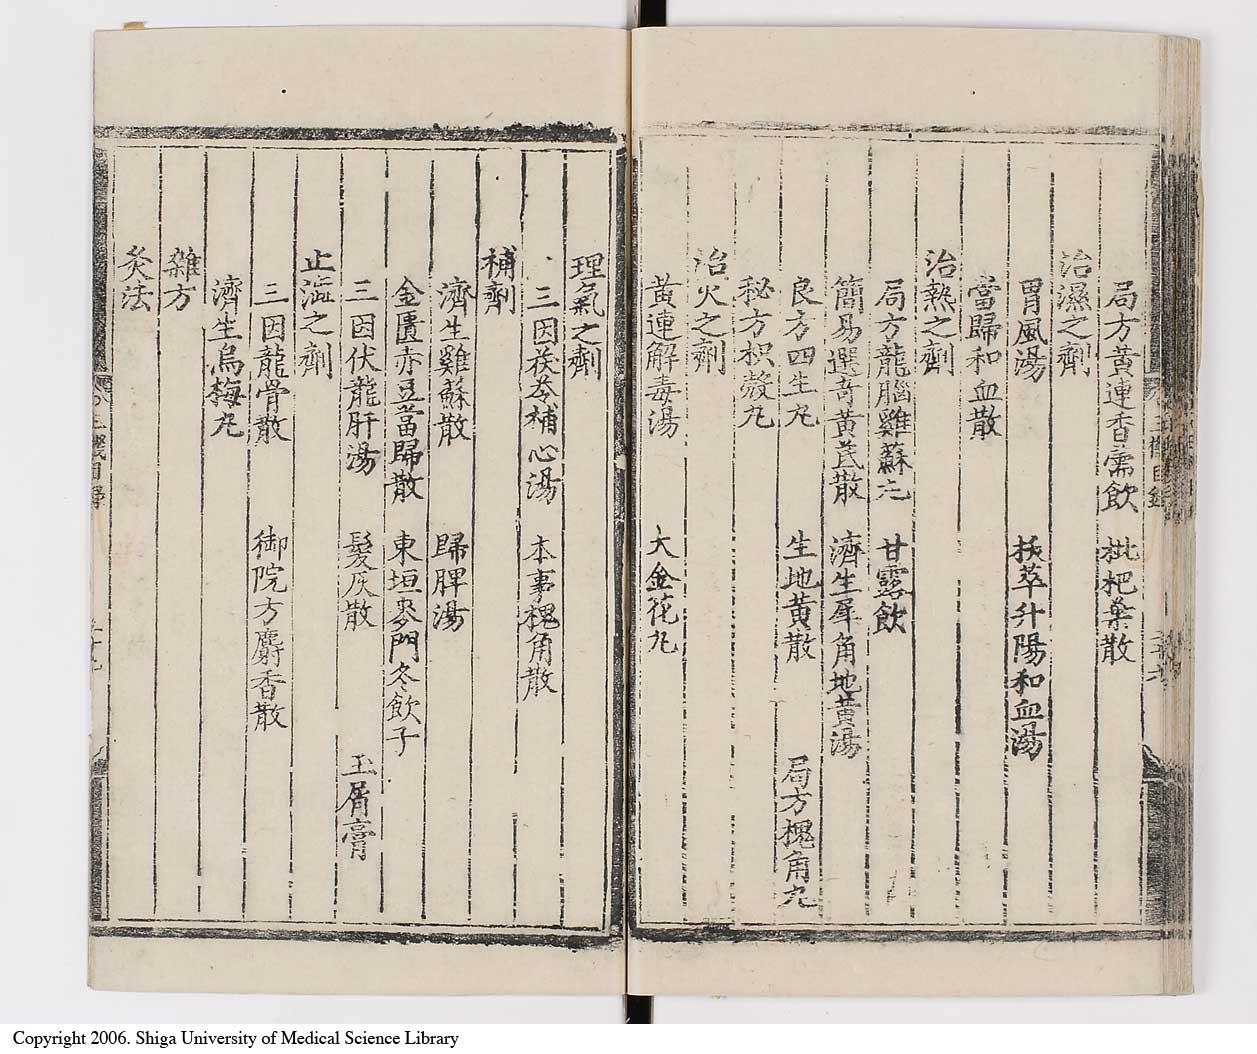 局方黃連香薷飲 枇杷葉散
治濕之劑
胃風湯 拔萃升陽和血湯
當歸和血散
治熱之劑
局方龍腦雞蘇元 甘露飲
簡易選奇黃芪散 濟生犀角地黃湯
良方四生丸 生地黃散 局方槐角丸
秘方枳殼丸
治火之劑
黃連解毒湯 大金花丸
理氣之劑
三因茯苓補心湯 本事槐角散
補劑
濟生雞蘇散 歸脾湯
金匱赤豆當歸散 東垣麥門冬飲子
三因伏龍肝湯 髮灰散 玉屑膏
止澁之劑
三因龍骨散 御院方麝香散
濟生烏梅丸
雜方
灸法
Copyright 2006. Shiga University of Medical Science Library